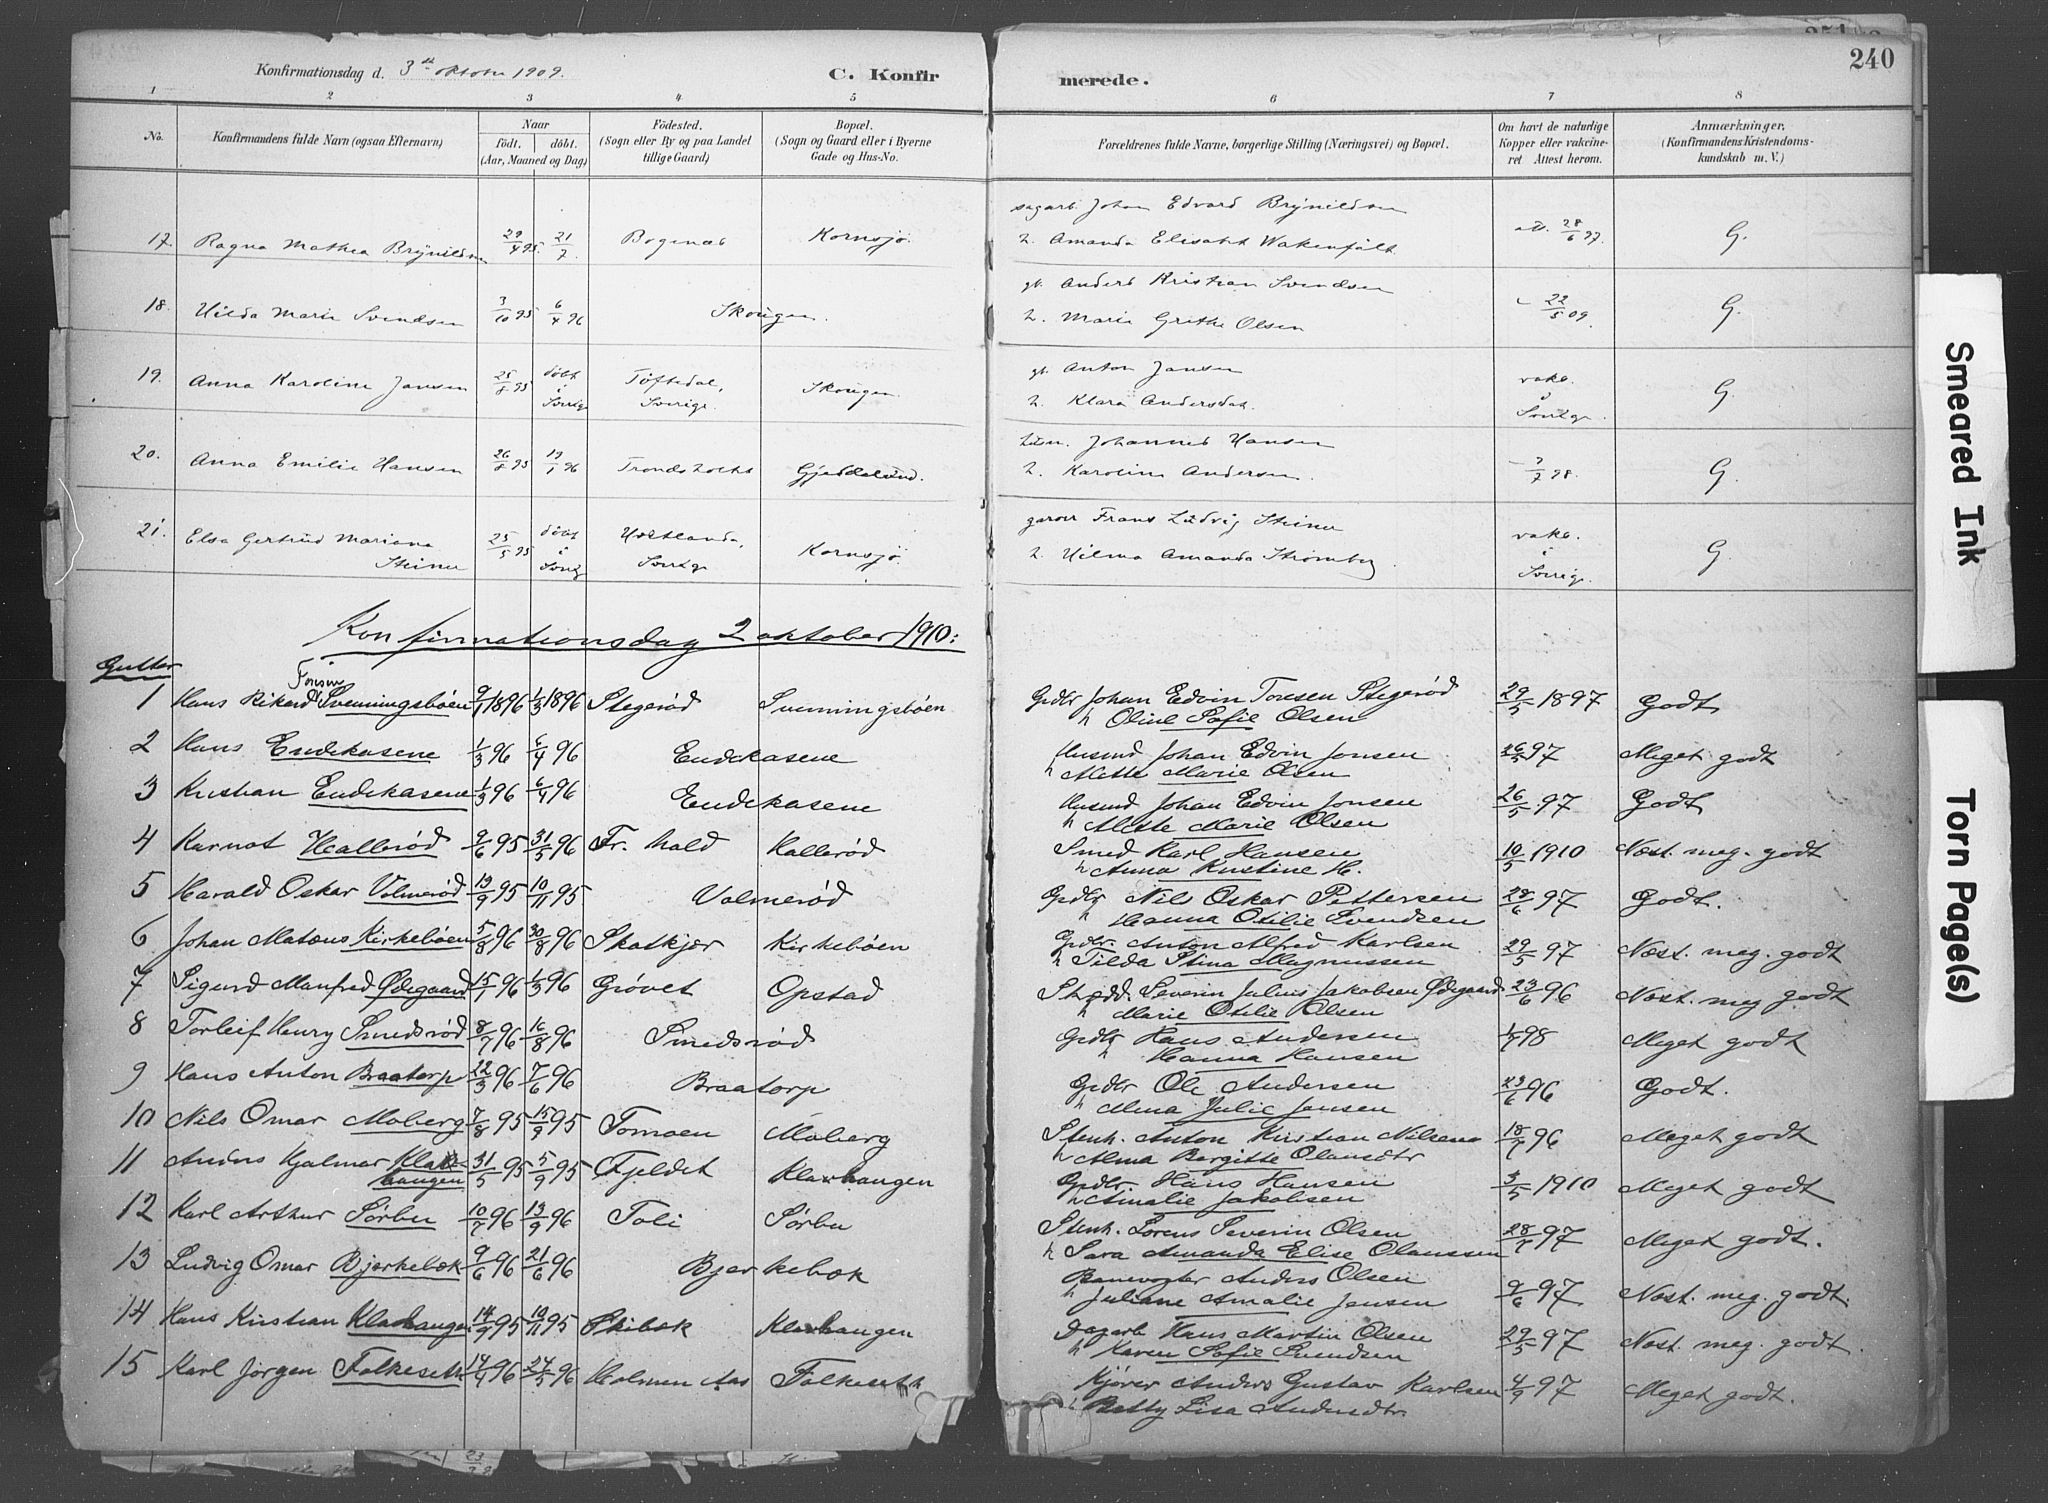 240
Konfirmationsdag d. 3die oktober 1909.
C. Konfirmerede.
1 2 3 4 5 6 7 8
No.
Konfirmandens fulde Navn (ogsaa Efternavn)
Naar
født. døbt.
(Aar, Maaned og Dag)
Fødested.
(Sogn eller By og paa Landet
tillige Gaard)
Bopæl.
(Sogn og Gaard eller i Byerne
Gade og Hus-No.
Forældrenes fulde Navne, borgerlige Stilling (Næringsvei) og Bopæl.
Om havt de naturlige
Kopper eller vakcine-
ret Attest herom.
Anmærkninger.
(Konfirmandens Kristendoms-
kundskab m. V.)
17. Ragna Mathea Brynildsen 29/4 95. 21/7 Bogenæs Kornsjø. Johan Edvard Brynildsen
h. Amanda Elisabet Wakenfält. att. 28/6 97. G.
18. Hilda Marie Svendsen 3/10 95 6/4 96 Skougen. gb. Anders Kristian Svendsen
h. Marie Grethe Olsen 22/5 09. G.
19. Anna Karoline Jansen 25/8 95 døbt i Sverige Töftedal, Sverige. Skougen. gb. Anton Jansen
h. Klara Andersdat. vakc. i Sverige. G
20. Anna Emilie Hansen 26/8 95 19/1 96 Trondsholts Gjeddelund. husm. Johannes Hansen
h. Karoline Andersen. 7/7 98. G.
21. Elsa Gertrud Mariana
Steiner 25/5 95 døbt i Sverige Sverige Kornsjø. garver Frans Ludvig Steiner
h. Hilma Amanda Strömberg. vakc. i Sverige. G
Konfirmationsdag 2 oktober 1910:
Gutter
1 Hans Rikard Tonsen Svenningsbøen 9/1 1896 1/3 1896 Stegerød Svenningsbøen Grdbr Johan Edvin Tonsen Stegerød
h Oline Sofie Olsen 29/5 1897 Godt
2 Hans Endekasene 1/3 96 6/4 96 Endekasene Husmd Johan Edvin Jonsen
h Mette Marie Olsen 26/5 97 Meget godt
3 Kristian Endekasene 1/3 96 6/4 96 Endekasene Husmd Johan Edvin Jonsen
h Mette Marie Olsen 26/5 97 Godt
4 Karnot Hallerød 9/6 95 31/5 96 Fr. hald Hallerød Smed Karl Hansen
h Anna Kristine H. 10/5 1910 Næst. meg. godt
5 Harald Oskar Volmerød 19/9 95 10/11 95 Volmerød Grdbr Nils Oskar Pettersen
h Hanna Otilie Svendsen 28/6 97 Godt.
6 Johan Matæus Kirkebøen 5/8 96 30/8 96 Skotkjær Kirkebøen Grdbr. Anton Alfred Karlsen
h Tilda Stina Magnussen 29/5 97 Næst. meg. godt
7 Sigurd Manfred Ødegaard 15/1 96 1/3 96 Grøvet Opstad Severin Julius Jakobsen Ødegaard
h Marie Otilie Olsen 23/6 96 Næst. meg godt
8 Torleif Henry Smedsrød 8/7 96 16/8 96 Smedsrød Grdbr Hans Andersen
h Hanna Hansen 1/7 98 Meget godt
9 Hans Anton Braatorp 22/3 96 7/6 96 Braatorp Grdbr Ole Andersen
h Alma Julie Jensen 23/6 96 Godt.
10 Nils Omar Moberg 7/8 95 15/9 95 Tomoen Moberg Stenh. Anton Kristian Nilsen
h Alma Bergitte Olansdtr 18/7 96 Meget godt
11 Anders Hjalmar Klar
hangen 31/5 95 5/9 95 Fjeldet Klarhangen Grdbr Hans Hansen
h Amalie Jakobsen 3/5 1910 Meget godt
12 Karl Arthur Sørbu 10/7 96 13/9 96 Toli Sørbu Stenh. Lorens Severin Olsen
h Sara Amanda Elise Olaussen 28/7 97 Meget godt.
13 Ludvig Omar Bjerkebæk 9/6 96 21/6 96 Bjerkebæk Banevogter Anders Olsen
h Juliane Amalie Jensen 9/6 97 Næst. meg. godt.
14 Hans Kristian Klarhangen 14/9 95 10/11 95 Skibæk Klarhangen Dagarb Hans Martin Olsen
h Karen Sofie Svendsen 29/5 97 Næst. meg. godt.
15 Karl Jørgen Folkeseth 14/4 96 24/5 96 Holmen Aas Folkeseth Kjører Anders Gustav Karlsen
h Betty Lisa Andersdtr. 4/9 97 Meget godt.
Smeared Ink
Torn Page(s)